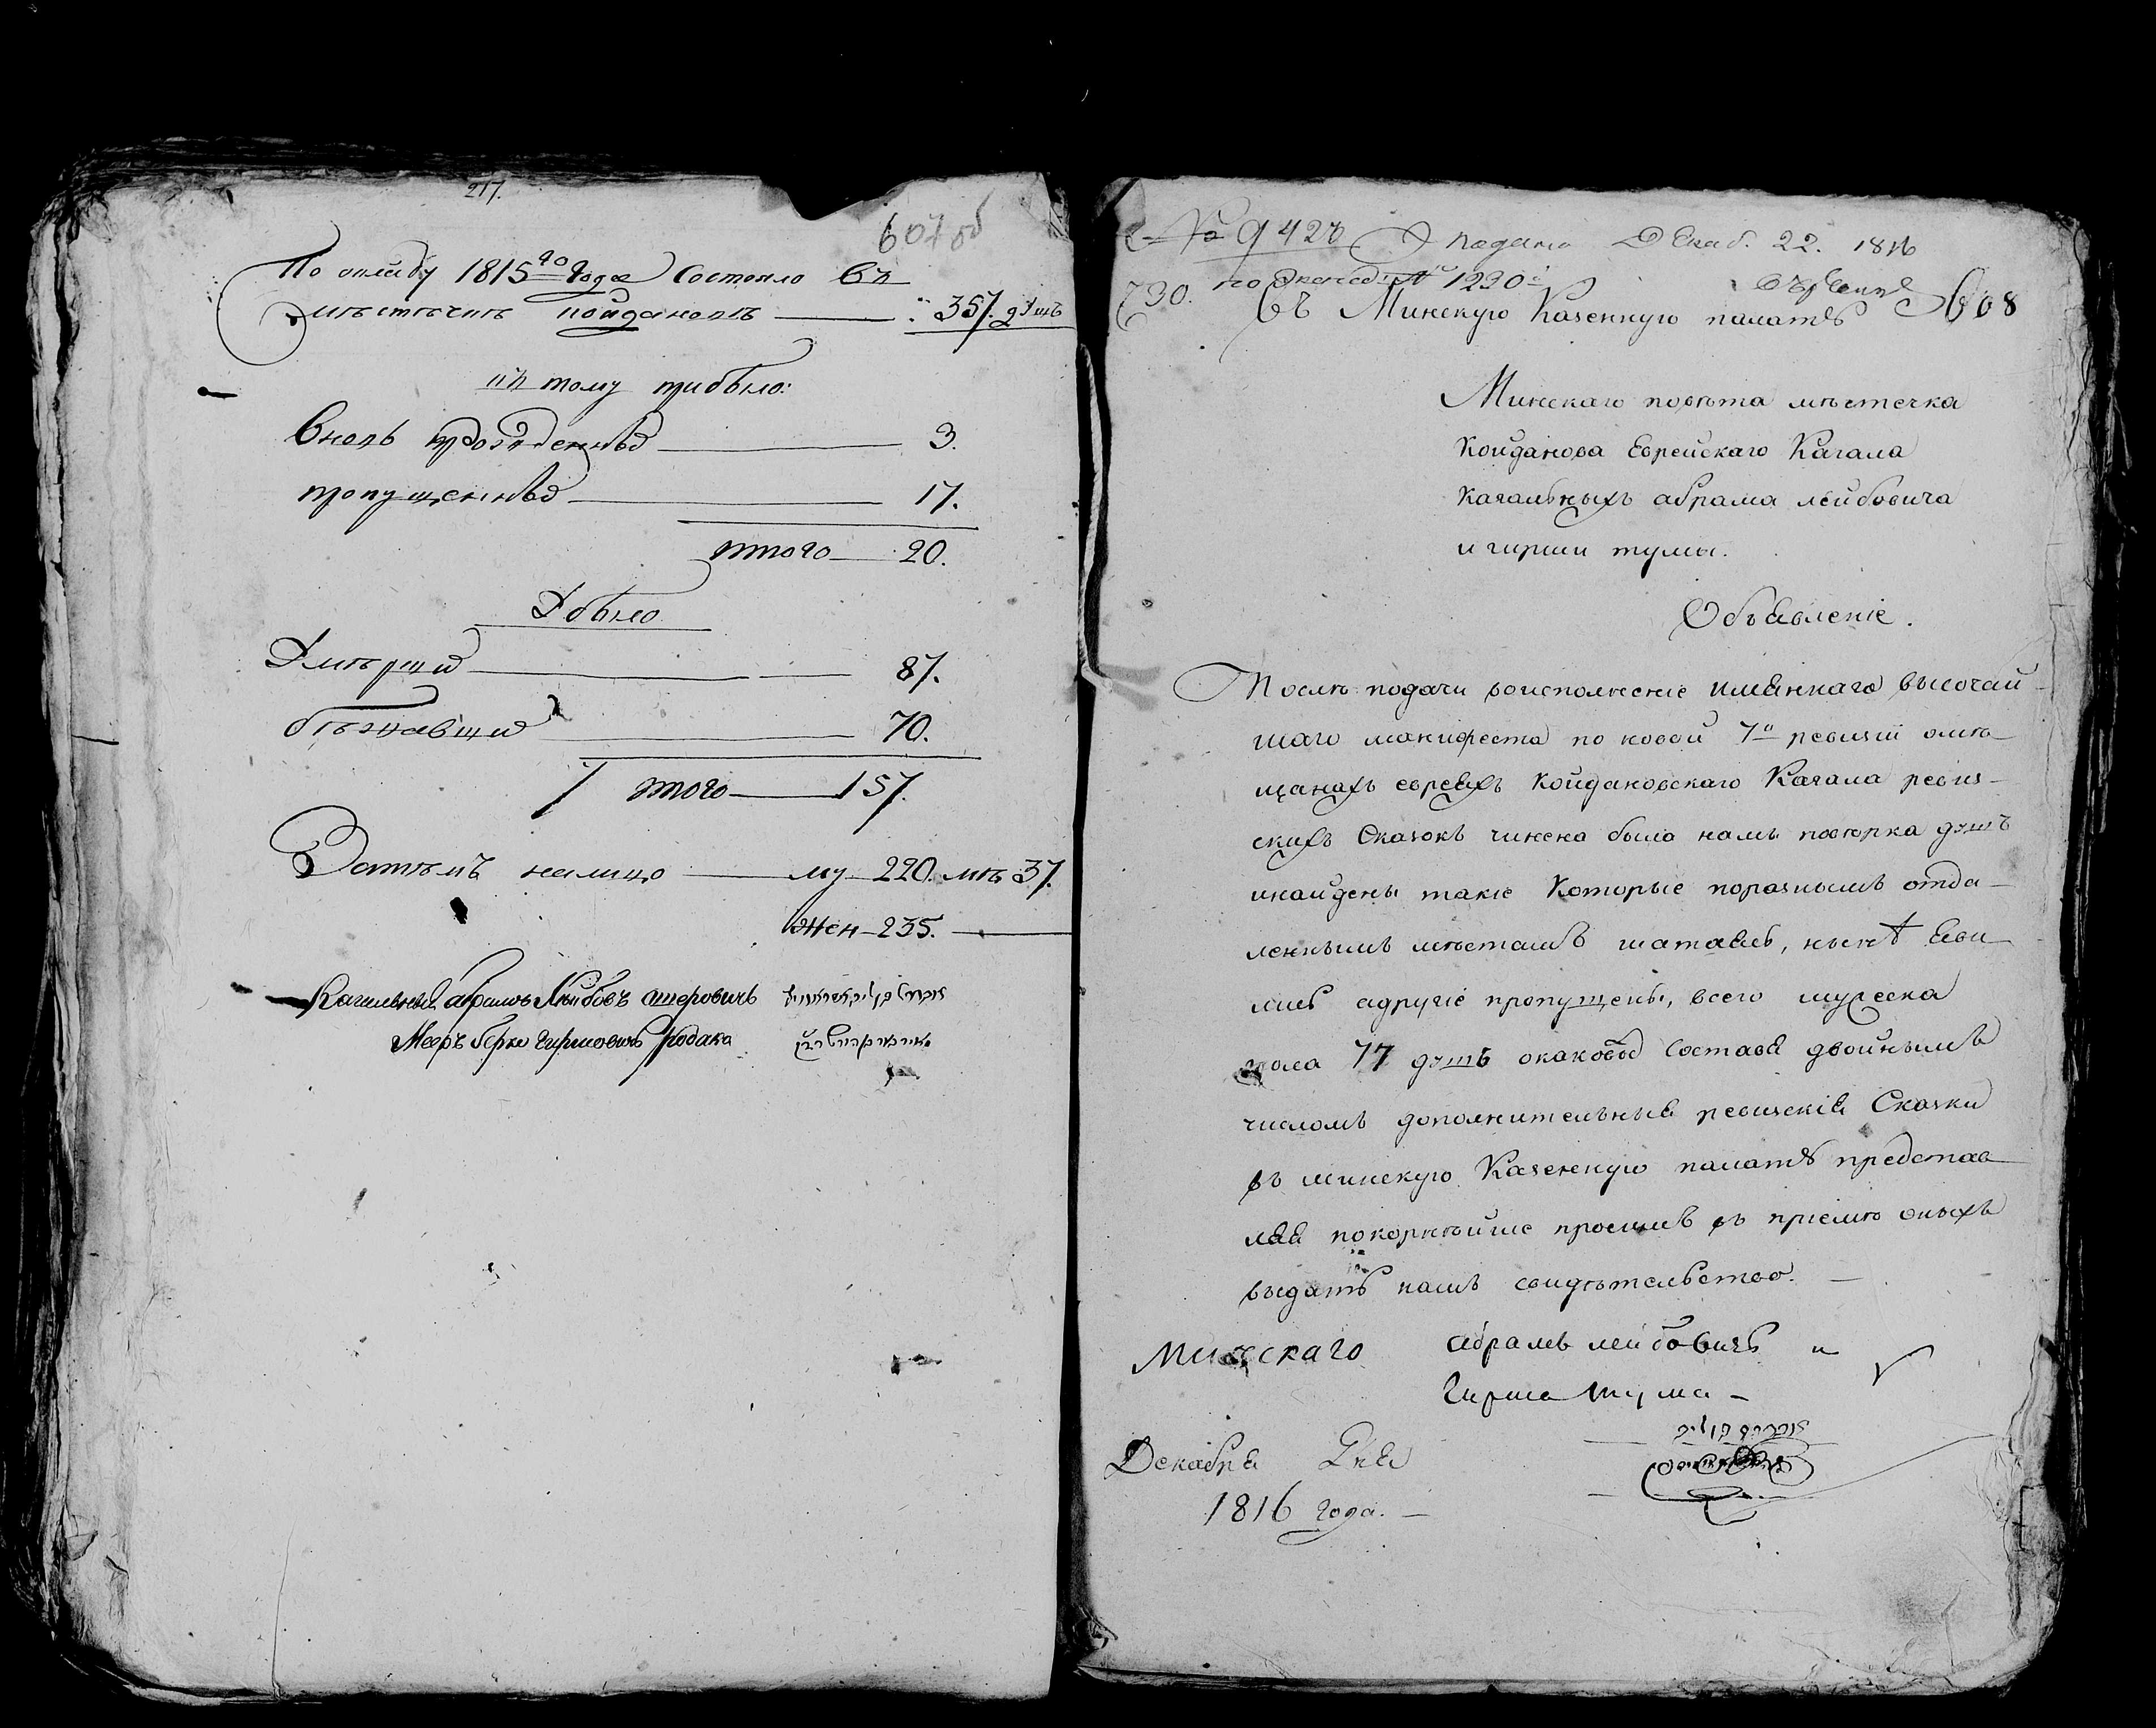 217.
607 об
По окладу 1815го Года Состояло въ
мѣстѣчкѣ Койдановѣ 357. душъ
къ тому прибыло:
Вновь рожденныхъ 3.
пропущенныхъ 17.
итого 20.
Убыло
Умѣршихъ 87.
бѣжавшихъ 70.
итого 157.
Затѣмъ налицо му 220. 37.
жен 235.
Кагальный абрамъ Лейбовъ шеровичъ
Мееръ берко гиршовичъ
№ 9427 подано Декаб. 22. 1816
730. по № 1230
Въ Минскую Казенную палатѣ 608
Минскаго повѣта мѣстечка
Койданова Еврейскаго Кагала
Кагальныхъ абрама лейбовича
и гирши тумы.
Объявленіе.
Послѣ подачи воисполненіе имяннаго высочай
шаго манифеста по новой 7й ревизіи омѣ-
щанахъ евреяхъ Койдановскаго Кагала ревиз-
скихъ Сказокъ чинена была нами повѣрка душъ
инайдены такіе Которые поразнымъ отда-
леннымъ мѣстамъ шатались, нынѣ яви
лись адругіе пропущены, всего мужеска
пола 17 душъ окаковыхъ Составя двойнымъ
числомъ дополнительныя ревизскія Сказки
въ минскую Казенную палатѣ представ
ляя покорнѣйше просимъ въ пріемѣ оныхъ
выдать намъ свидѣтельство.
Абрамъ лейбовичъ и
Гирша тума
Минскаго
Декабря Дня
1816 года.